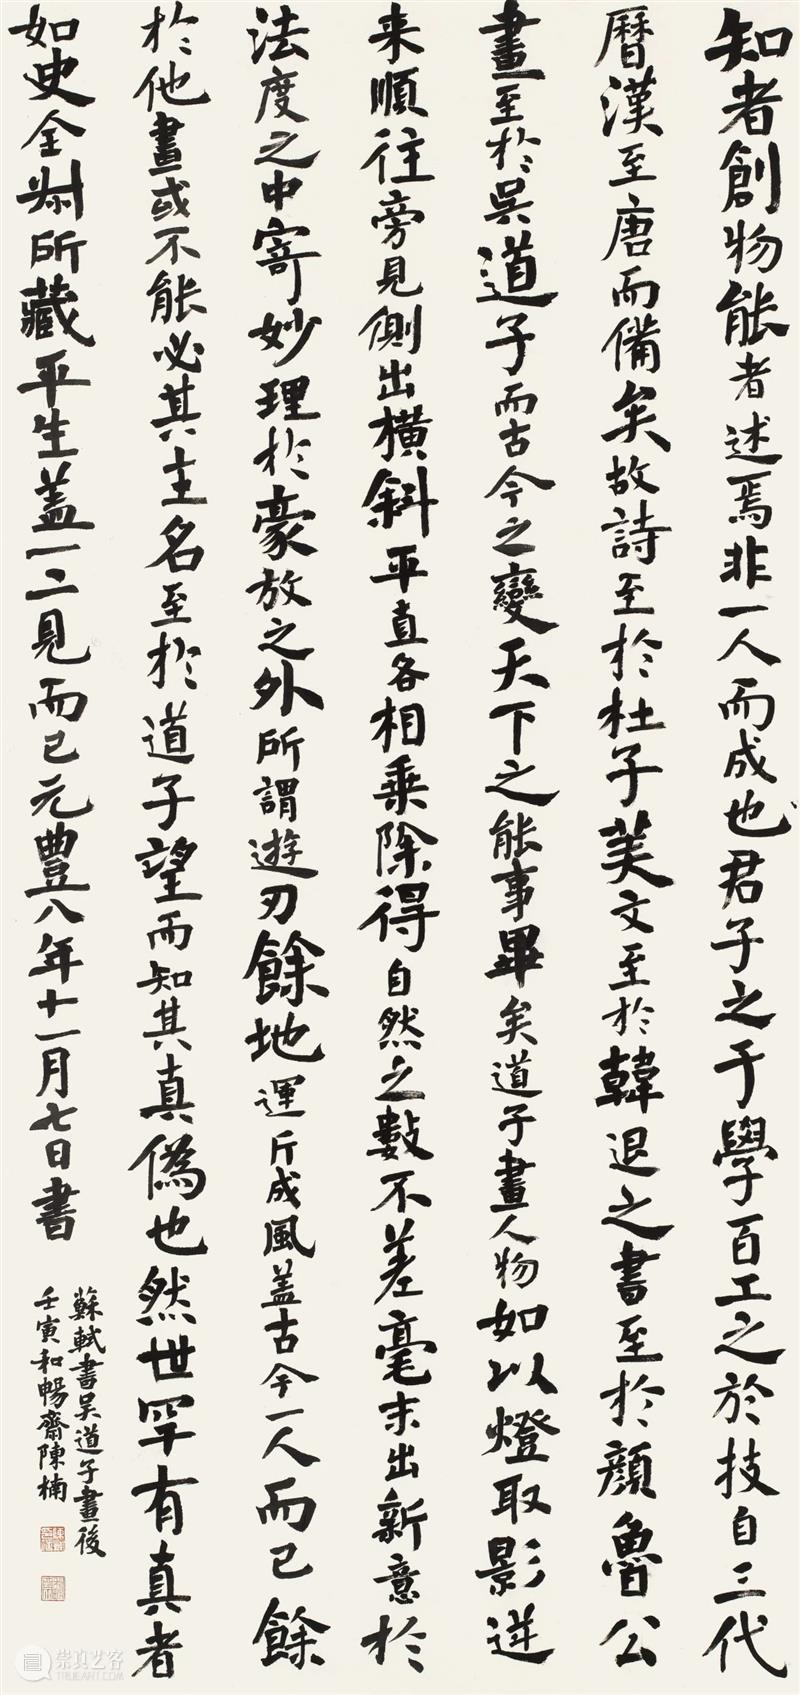 知者創物能者述焉非一人而成也君子之于學百工之於技自三代
曆漢至唐而備矣故詩至於杜子美文至於韓退之書至於顏魯公
畫至於吳道子而古今之變天下之能事畢矣道子畫人物如以燈取影逆
来順往旁見側出橫斜平直各相乘除得自然之數不差毫末出新意於
法度之中寄妙理於豪放之外所謂遊刃餘地運斤成風盖古今一人而已餘
於他畫或不能必其主名至於道子望而知其真偽也然世罕有真者
如史全尗所藏平生盖一二見而已元豐八年十一月七日書
蘇軾書吳道子畫後
壬寅和暢齋陳楠
崇真艺客
WWW.TRUEART.COM